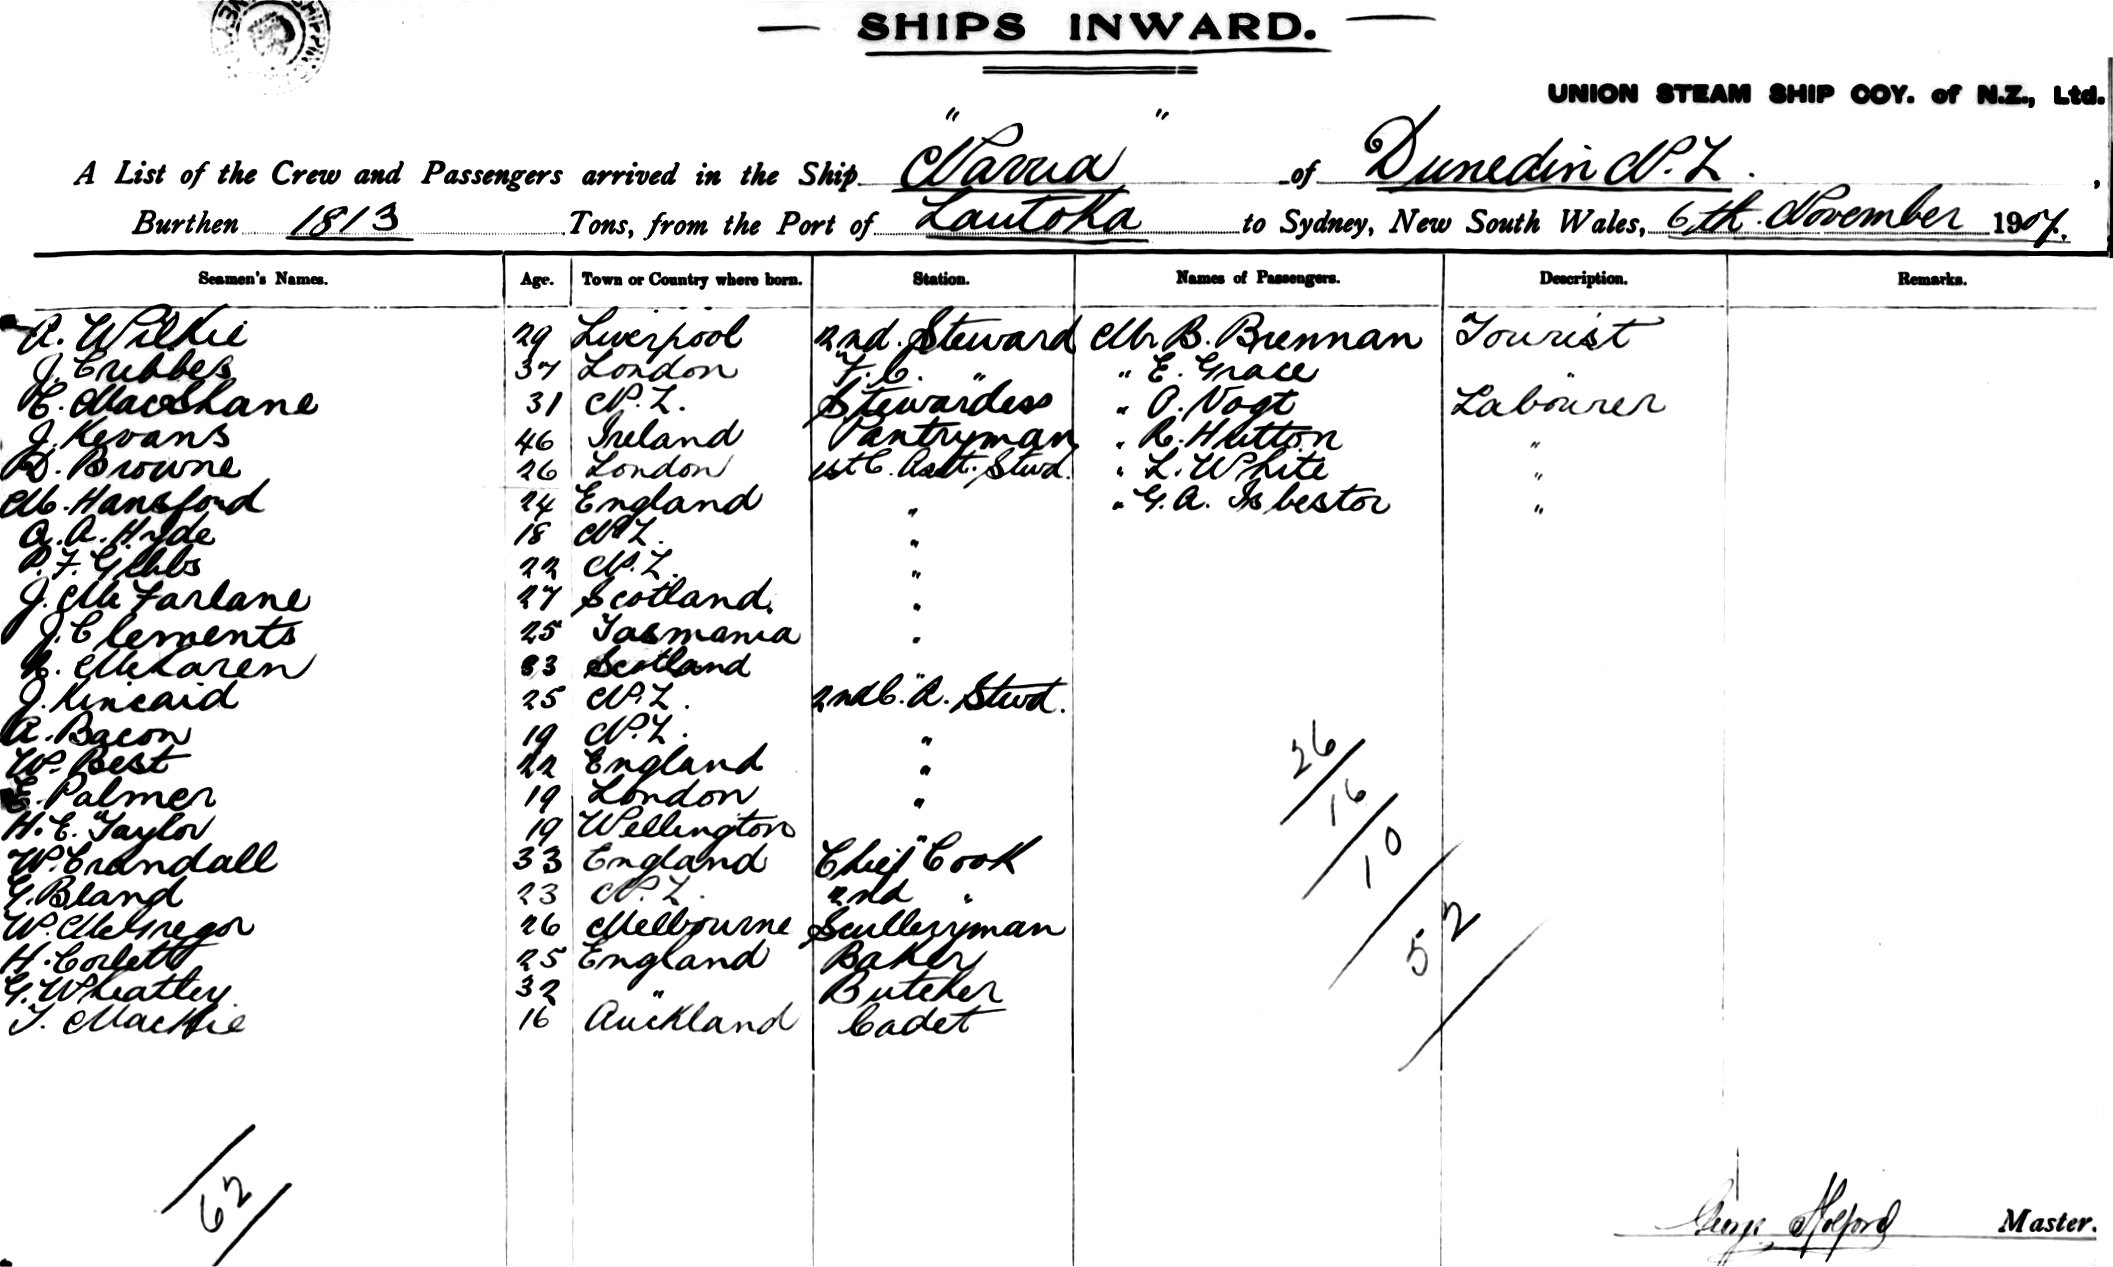 — SHIPS INWARD. —
UNION STEAM SHIP COY. of N.Z., Ltd.
A List of the Crew and Passengers arrived in the Ship "Navua" of Dunedin N.Z.,
Burthen 1813 Tons, from the Port of Lautoka to Sydney, New South Wales, 6th November 1907.
Seamen's Names. Age. Town or Country where born. Station. Names of Passengers. Description. Remarks.
A. Wilkie 29 Liverpool 2nd. Steward Mr B. Brennan Tourist
J. Cribbes 37 London F.C. " " E. Grace "
C. MacShane 31 N.Z. Stewardess " O. Vogt Labourer
J. Kevans 46 Ireland Pantryman " R. Hutton "
D. Browne 26 London 1st C. Asst. Stwd. " L. White "
M. Hansford 24 England " " G. A. Isbestor "
A. A. Hyde 18 N.Z. "
P. F. Gibbs 22 N.Z. "
J. McFarlane 27 Scotland. "
J. Clements 25 Tasmania "
McLaren 33 Scotland "
J. Kincaid 25 N.Z. 2nd C. A. Stwd.
A. Bacon 19 N.Z. "
W. Best 22 England "
E. Palmer 19 London "
H. E. Taylor 19 Wellington "
W. Crandall 33 England Chief Cook
G. Bland 23 N.Z. 2nd "
W. McGregor 26 Melbourne Sculleryman
H. Corlett 25 England Baker
G. Wheatley 32 " Butcher
T. Mackie 16 Auckland Cadet
26
16
10
52
62
George Holford Master.